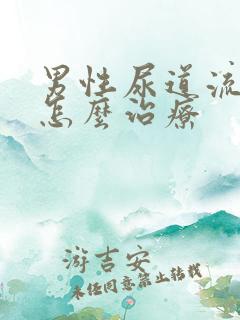 男性尿道流
怎麼治療
游吉安
未经同意禁止转载